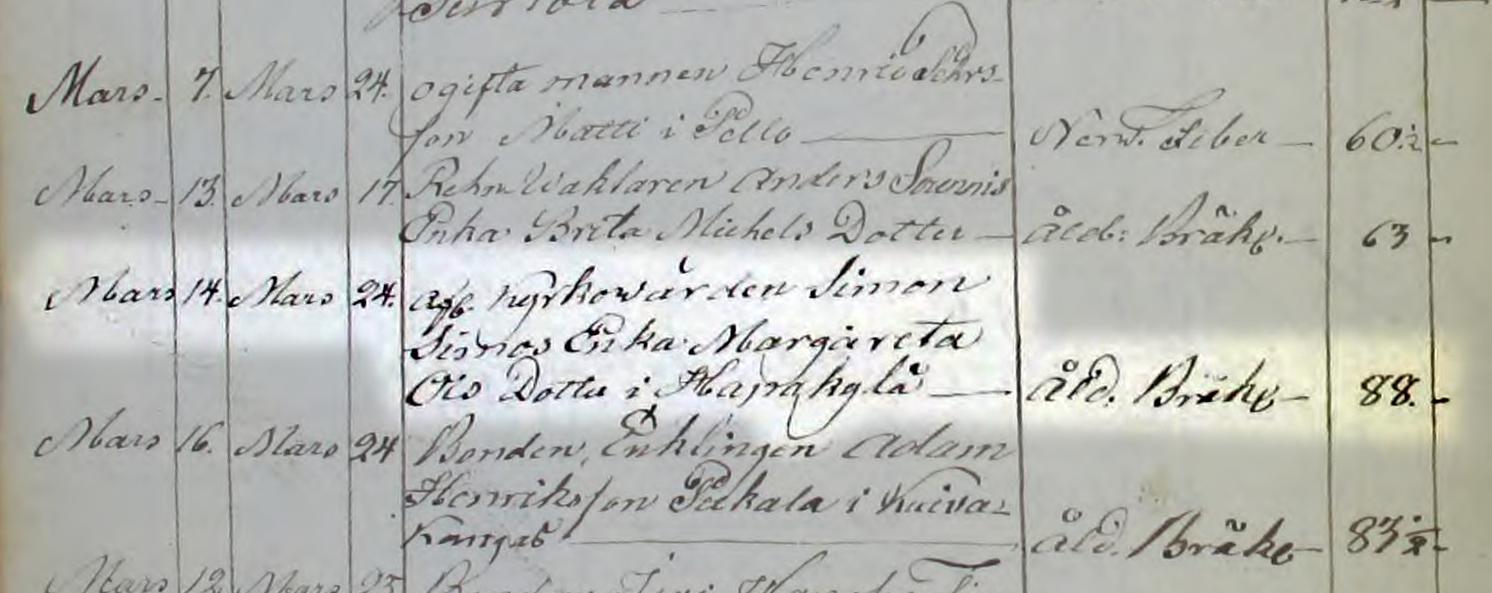 Mars. 7. Mars 24. ogifta mannen Henric Lars-
son Matti i Pello — Nerv. Feber — 60½ -
Mars - 13. Mars 17. Rehn Waktaren Anders
Enka Brita Michels Dotter — Åld: Bräkl. — 63 -
Mars 14. Mars 24. afl. Kyrkowärden Simon
Simos Enka Margareta
Ols Dotter i Hapakylä — Åld. Bräkl — 88. -
Mars 16. Mars 24 Bonden, Enklingen Adam
Henriksson Pekala i Kuiva-
kangas — Åld. Bräkl — 83½ -
Mars 12. Mars